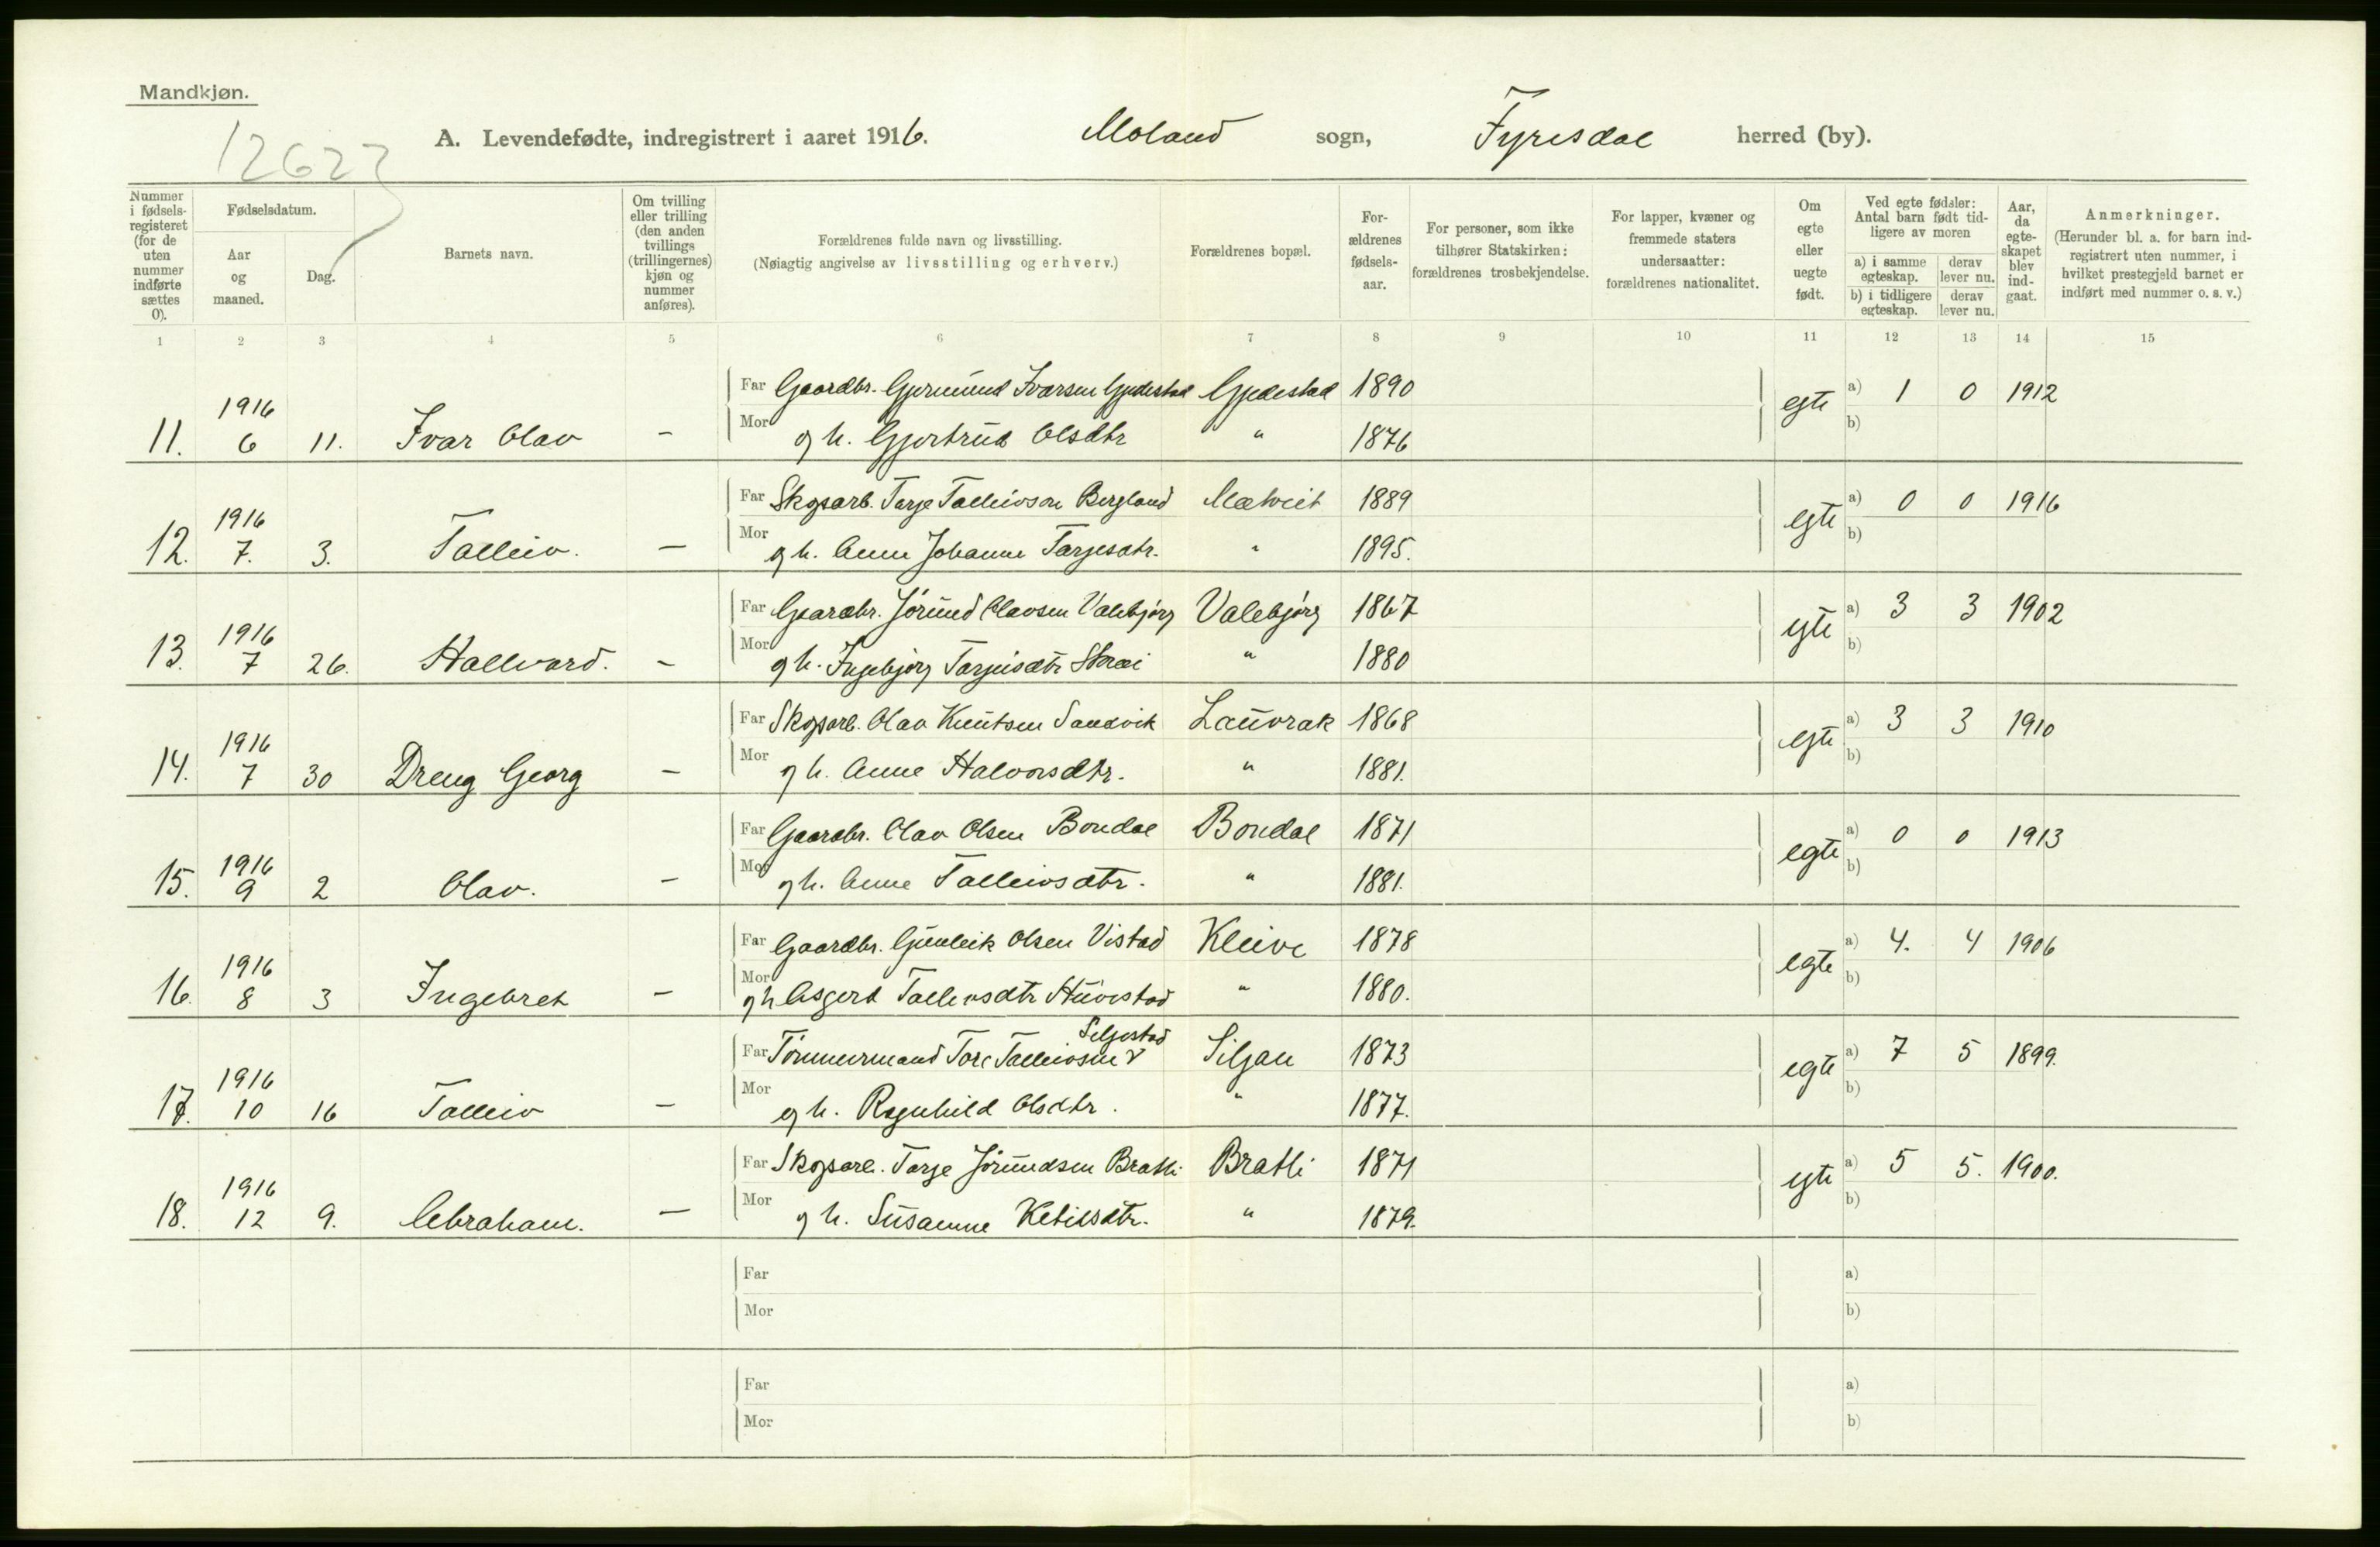 Mandkjøn.
12623
A. Levendefødte, indregistrert i aaret 1916. Moland sogn, Fyresdal herred (by).
Nummer i fødsels-registeret (for de uten nummer indførte sættes 0).
Fødselsdatum.
Aar og maaned.
Dag.
Barnets navn.
Om tvilling eller trilling (den anden tvillings (trillingernes) kjøn og nummer anføres).
Forældrenes fulde navn og livsstilling.
(Nøiagtig angivelse av livsstilling og erhverv.)
Forældrenes bopæl.
For-ældrenes fødsels-aar.
For personer, som ikke tilhører Statskirken: forældrenes trosbekjendelse.
For lapper, kvæner og fremmede staters undersaatter: forældrenes nationalitet.
Om egte eller uegte født.
Ved egte fødsler: Antal barn født tid-ligere av moren
a) i samme egteskap. derav lever nu.
b) i tidligere egteskap. derav lever nu.
Aar, da egte-skapet blev ind-gaat.
Anmerkninger.
(Herunder bl. a. for barn ind-registrert uten nummer, i hvilket prestegjeld barnet er indført med nummer o. s. v.)
1 2 3 4 5 6 7 8 9 10 11 12 13 14 15
Far Gaardbr. Gjermund Ivarsen Gjedestad Gjedestad 1890 egte a) 1 0 1912
11. 1916 6 11. Ivar Olav – Mor og h. Gjertrud Olsdtr " 1876 b)
Far Skogsarb. TarjeТалleivson Bergland 1889 egte a) 0 0 1916
12. 1916 7. 3. Talleiv. – Mor og h. Anne Johanne Tarjesdtr. " 1895. b)
Far Gaardbr. Jörund Olavsen Valebjörg Valebjörg 1867 egte a) 3 3 1902
13. 1916 7 26. Hallvard. – Mor og h. Ingebjörg Tarjeisdtr " 1880 b)
Far Skogsarb. Olav Knutsen Sandvik Lauvrak 1868 egte a) 3 3 1910
14. 1916 7 30 Dreng Georg – Mor og h. Anne Halvorsdtr. " 1881. b)
Far Gaardbr. Olav Olsen Bondal Bondal 1871 egte a) 0 0 1913
15. 1916 9 2 Olav. – Mor og h. Anne Talleivsdtr. " 1881. b)
Far Gaardbr. Gunleik Olsen Vistad Kleive 1878 egte a) 4. 4 1906
16. 1916 8 3 Ingebret – Mor og h Asgerd Talleivsdtr Huvestad " 1880. b)
Far Tömmermand Tore Talleivsen Seljestad Siljan 1873 egte a) 7 5 1899.
17. 1916 10 16 Talleiv – Mor og h. Ragnhild Olsdtr. " 1877. b)
Far Skogsarb. Tarje Jörundsen Bratli Bratli 1871 egte a) 5 5. 1900.
18. 1916 12 9. Abraham. – Mor og h. Susanne Ketilsdtr. " 1879. b)
Far a)
Mor b)
Far a)
Mor b)